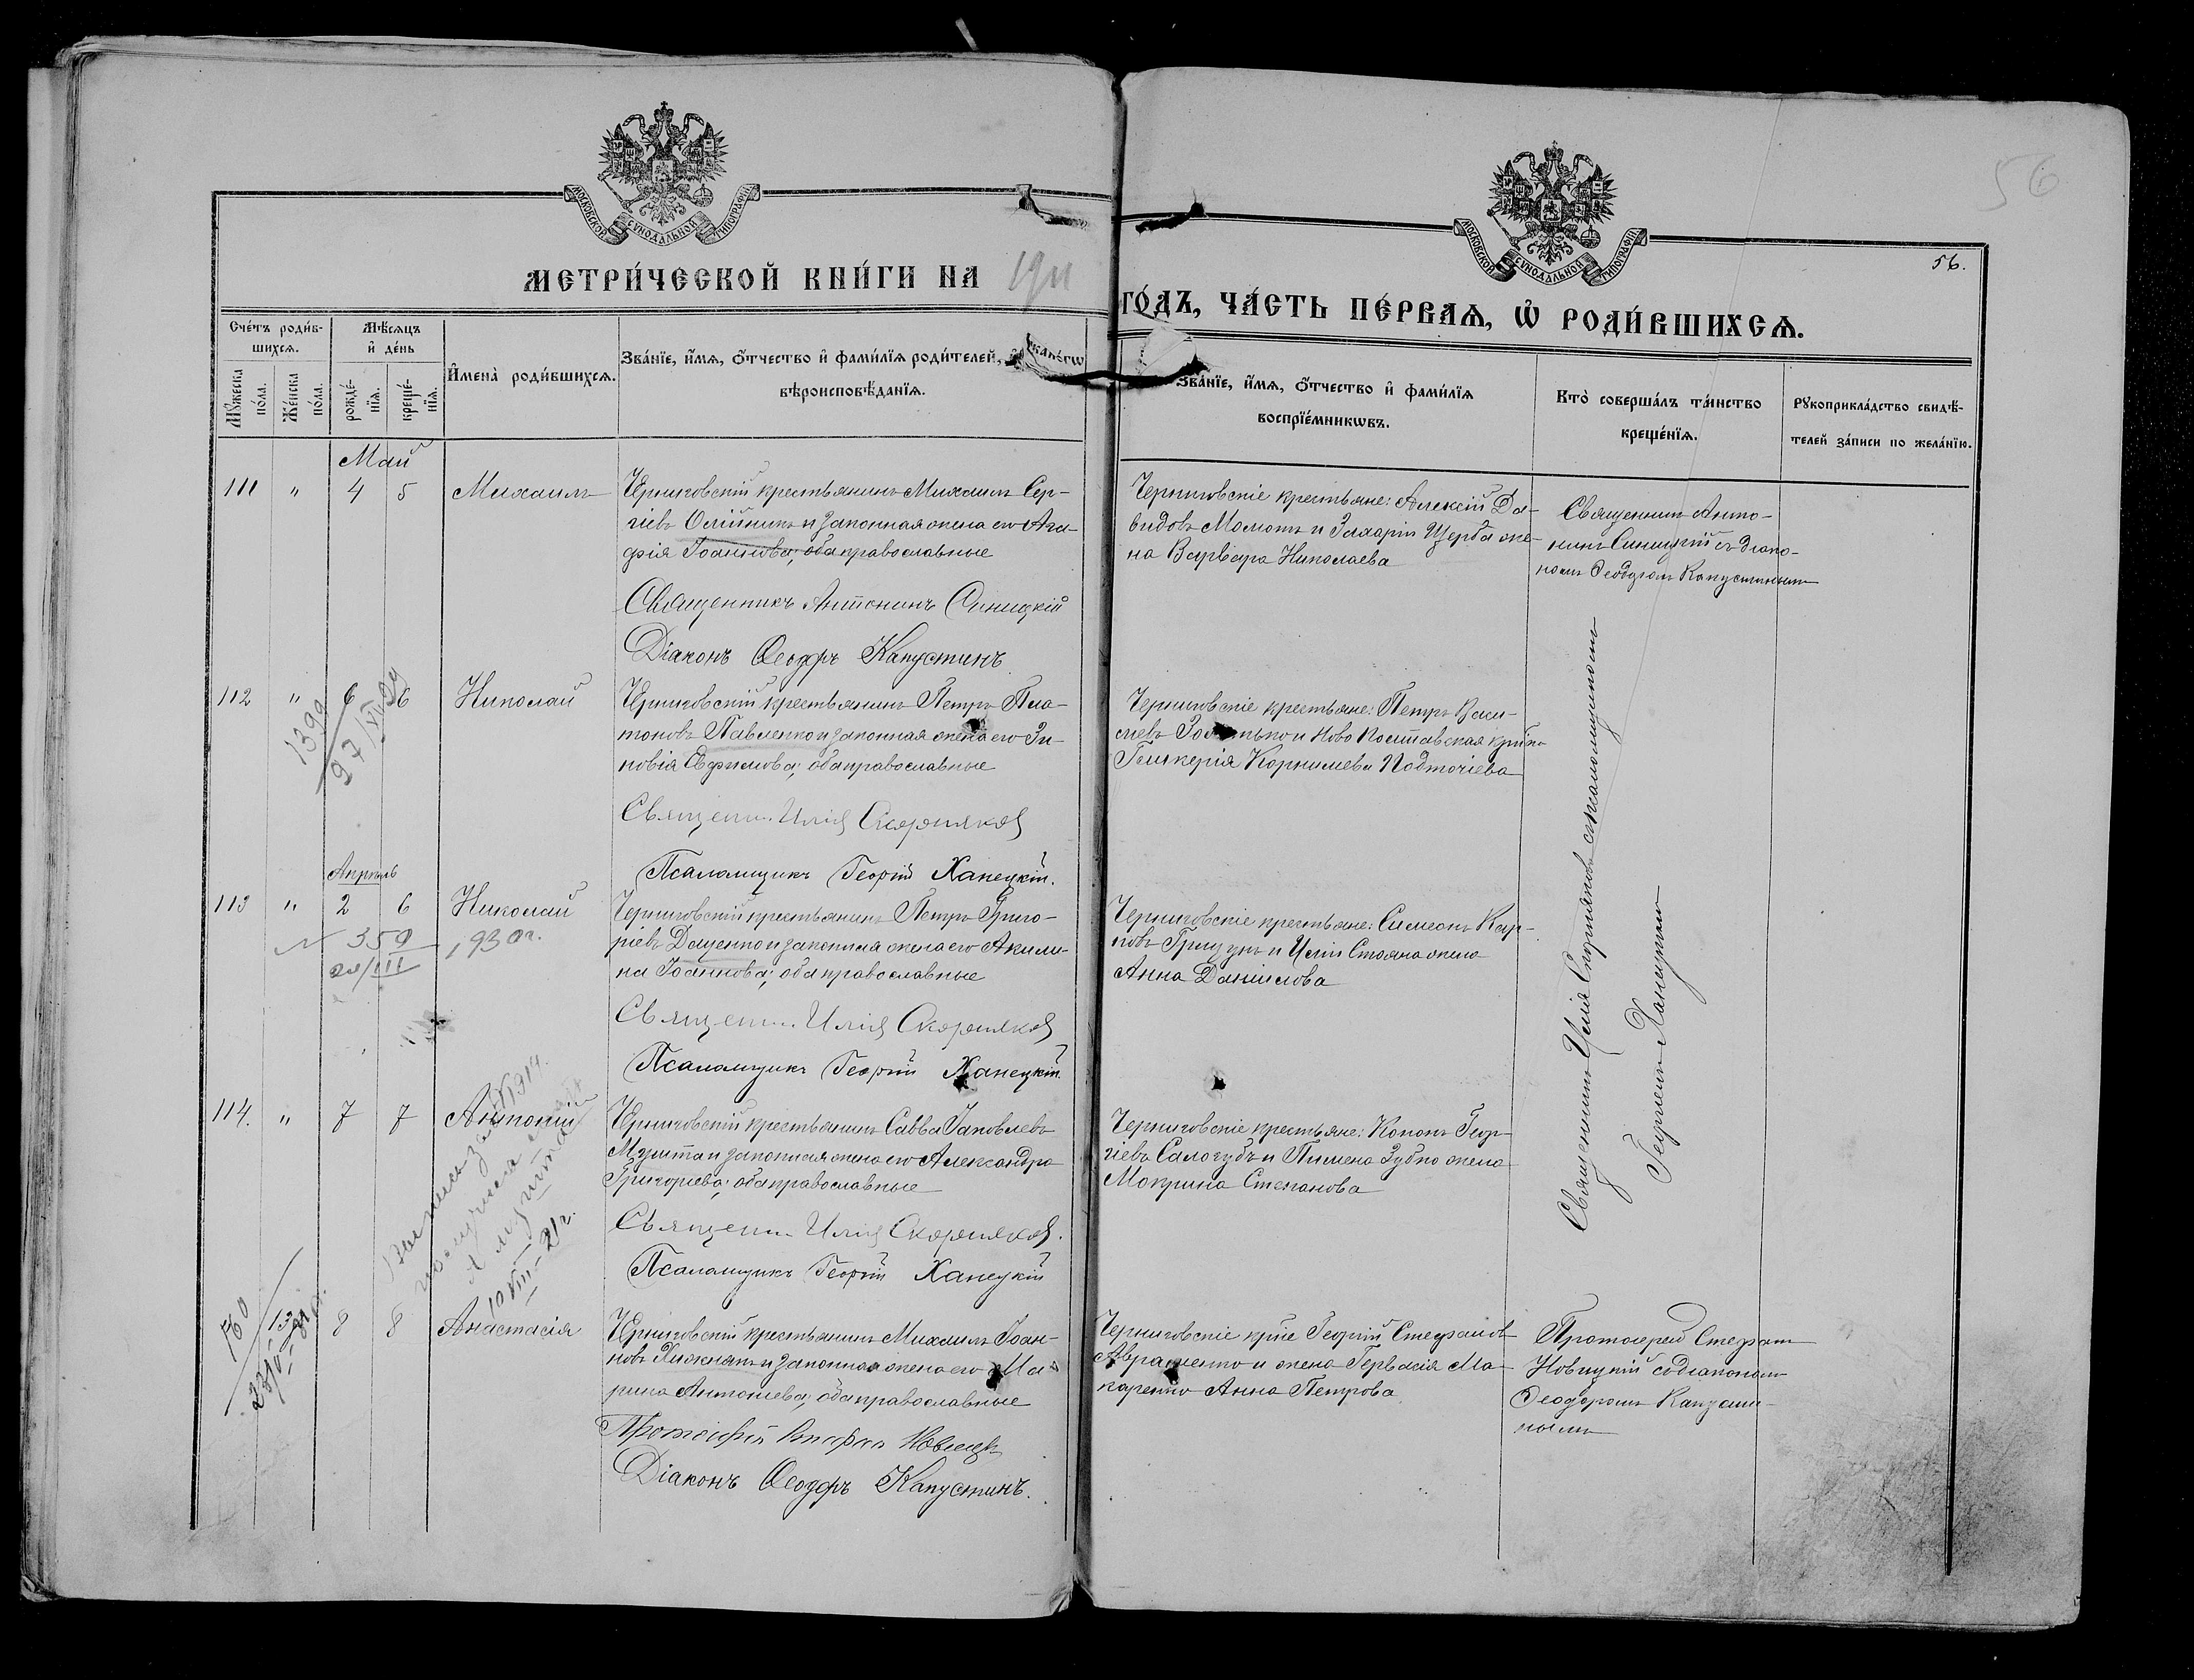 56
56.
МОСКОВСКОЙ СѴНОДАЛЬНОЙ ТИПОГРАФІИ
МОСКОВСКОЙ СѴНОДАЛЬНОЙ ТИПОГРАФІИ
МЕТРИ́ЧЕСКОЙ КНИ́ГИ НА 1911
ГО́ДЪ, ЧА́СТЬ ПЕ́РВАѦ, Ѡ҆ РОДИ́ВШИХСѦ.
Сче́тъ роди́в-
шихсѧ.
Мꙋ́жеска по́ла.
Же́нска по́ла.
Мѣ́сѧцъ
и҆ де́нь
рожде́-
нїѧ.
креще́-
нїѧ.
И҆мена̀ роди́вшихсѧ.
Зва́нїе, и҆́мѧ, ѻ҆́тчество и҆ фами́лїѧ роди́телей,
вѣроисповѣ́данїѧ.
Зва́нїе, и҆́мѧ, ѻ҆́тчество и҆ фами́лїѧ
воспрїе́мникѡвъ.
Кто̀ соверша́лъ та́инство
креще́нїѧ.
Рꙋкоприкла́дство свидѣ́-
телей за́писи по жела́нїю.
Май
111 " 4 5 Михаилъ
Черниговскій крестьянинъ Михаилъ Сер-
гіевъ Олійникъ и законная жена его Ага-
фія Іоаннова, оба православные
Священникъ Антонинъ Синицкій
Діаконъ Ѳеодоръ Капустинъ.
Черниговскіе крестьяне: Алексій Да-
видовъ Момотъ и Захарія Щерба же-
на Варвара Николаева
Священникъ Анто-
нинъ Синицкій съ діако-
номъ Ѳеодоромъ Капустинымъ
112 " 6 6 Николай
1399
27/VI 29
Черниговскій крестьянинъ Петръ Пла-
тоновъ Павленко и законная жена его Зи-
новія Евфимова, оба православные
Священн. Илія Скорняковъ
Псаломщикъ Георгій Ханецкій.
Черниговскіе крестьяне: Петръ Васи-
льевъ и Ново
Гликерія Корнилева
Священникъ Илія Скорняковъ съ псаломщикомъ
Георгіемъ Ханецкимъ
Апрѣль
113 " 2 6 Николай
N 359 1930г.
20/III
Черниговскій крестьянинъ Петръ Григо-
ріевъ Даценко и законная жена его Акили-
на Іоаннова, оба православные
Священн. Илія Скорняковъ
Псаломщикъ Георгій Ханецкій.
Черниговскіе крестьяне: Симеонъ Кар-
повъ Грицунъ и Иліи Стояна жена
Анна Даніилова
114. " 7 7 Антоній
10 VIII – 21г.
Черниговскій крестьянинъ Савва Іаковлевъ
Мушта и законная жена его Александра
Григорьева, оба православные
Священн. Илія Скорняковъ.
Псаломщикъ Георгій Ханецкій
Черниговскіе крестьяне: Кононъ Геор-
гіевъ Салогубъ и Пимена Зубко жена
Мокрина Степанова
760
8 8 Анастасія
Черниговскій крестьянинъ Михаилъ Іоан-
новъ Хижнякъ и законная жена его Ма-
рина Антоніева, оба православные
Протоіерей Стефанъ Новицкій
Діаконъ Ѳеодоръ Капустинъ.
Черниговскіе кр-не Георгій Стефановъ
Авраменко и жена Гервасія Ма-
каренко Анна Петрова
Протоіерей Стефанъ
Новицкій съ діакономъ
Ѳеодоромъ Капусти-
нымъ